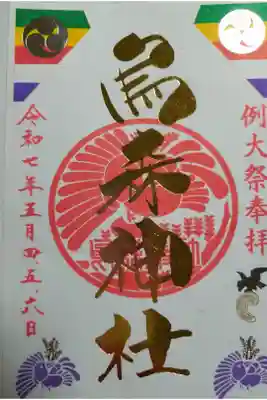 例大祭奉拝
烏森神社
令和七年五月四五、六日